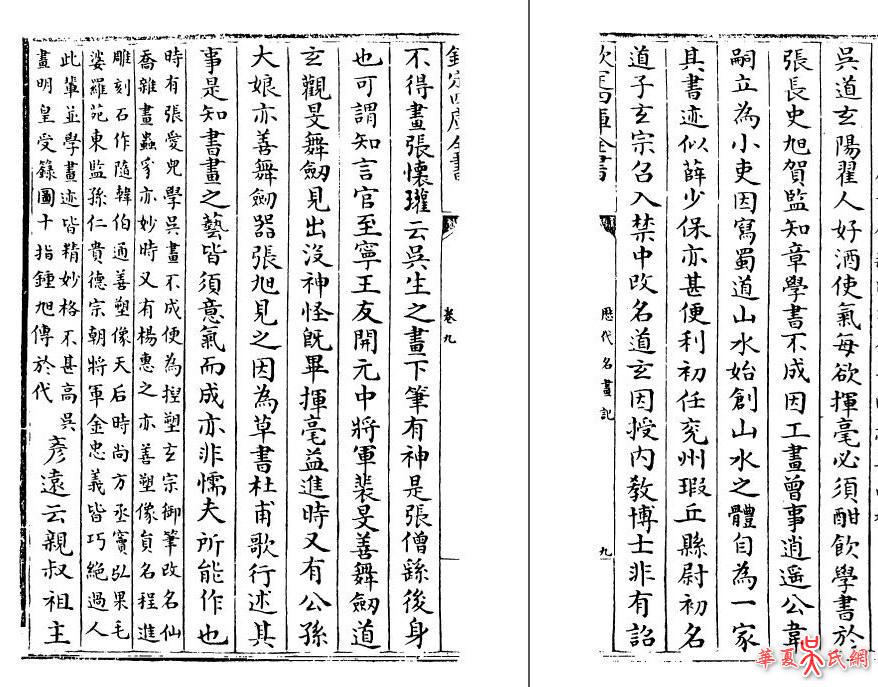 吳道玄陽翟人好酒使氣每欲揮毫必須酣飲學書於
張長史旭賀監知章學書不成因工畫曾事逍遥公韋
嗣立為小吏因寫蜀道山水始創山水之體自為一家
其書迹似薛少保亦甚便利初任兖州瑕丘縣尉初名
道子玄宗召入禁中改名道玄因授内教博士非有詔
欽定四庫全書
歷代名畫記
九
欽定四庫全書
卷九
不得畫張懷瓘云吳生之畫下筆有神是張僧繇後身
也可謂知言官至寧王友開元中將軍裴旻善舞劒道
玄觀旻舞劒見出没神怪既畢揮毫益進時又有公孫
大娘亦善舞劒器張旭見之因為草書杜甫歌行述其
事是知書畫之藝皆須意氣而成亦非懦夫所能作也
時有張愛兒學吳畫不成便為揑塑玄宗御筆改名仙
喬雜畫蟲豸亦妙時又有楊惠之亦善塑像貟名程進
雕刻石作隨韓伯通善塑像天后時尚方丞竇弘果毛
婆羅苑東監孫仁貴德宗朝將軍金忠義皆巧絶過人
此輩並學畫迹皆精妙格不甚高吳
畫明皇受籙圖十指鍾旭傳於代
彥遠云親叔祖主
華夏吳氏網